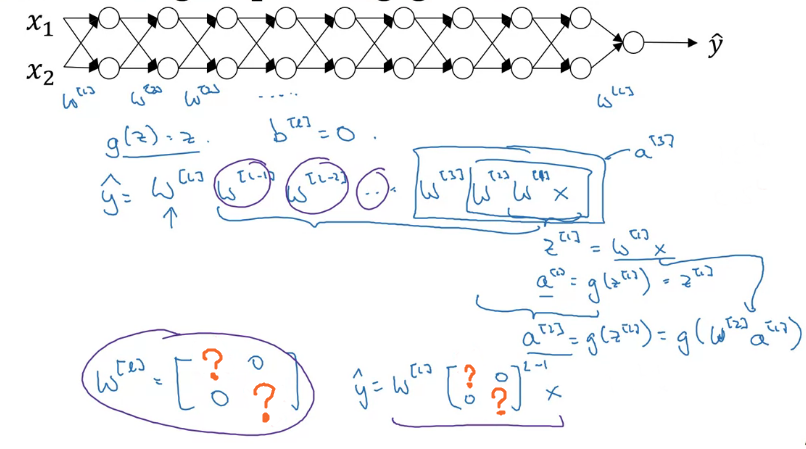 x₁
x₂
ŷ
w^[1] w^[2] w^[3] ..... w^[L]
g(z) = z. b^[l] = 0.
a^[3]
ŷ = w^[L] w^[L-1] w^[L-2] ... w^[3] w^[2] w^[1] x
z^[1] = w^[1] x
a^[1] = g(z^[1]) = z^[1]
a^[2] = g(z^[2]) = g(w^[2] a^[1])
w^[l] = [? 0
0 ?]
ŷ = w^[L] [? 0
0 ?]^L-1 x